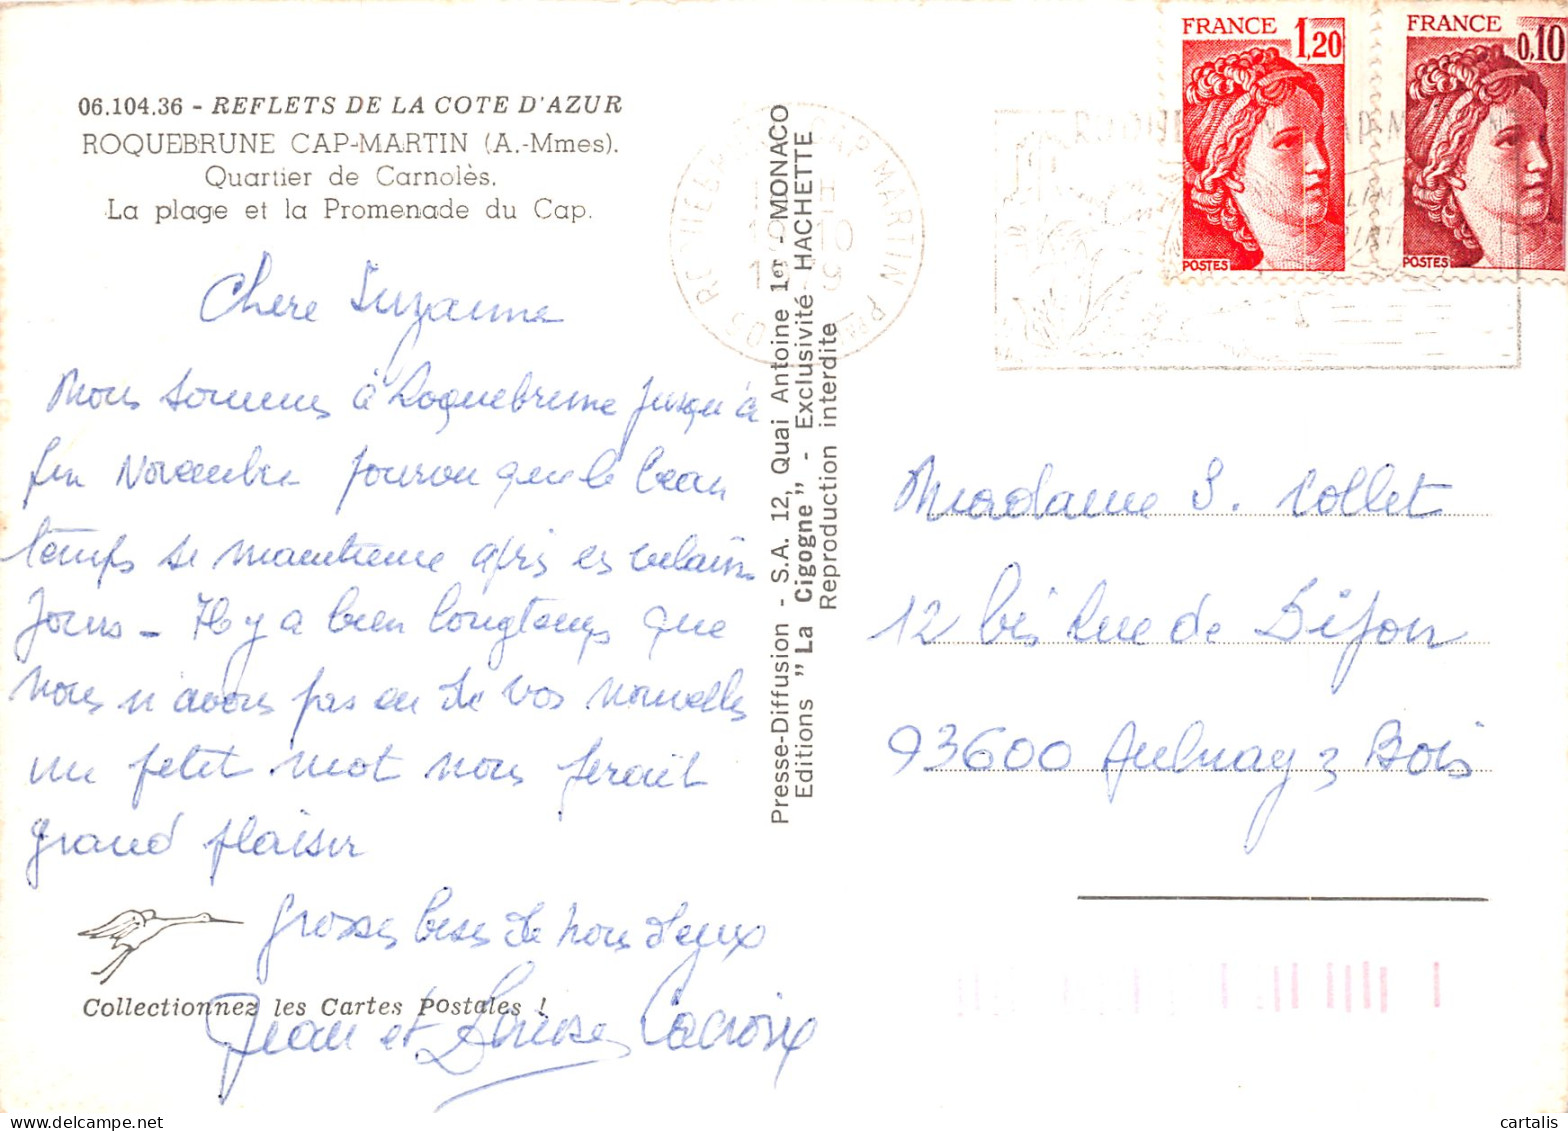 06.104.36 - REFLETS DE LA COTE D'AZUR
ROQUEBRUNE CAP-MARTIN (A.-Mmes).
Quartier de Carnolès.
La plage et la Promenade du Cap.
Chère Suzanne
Nous sommes à Roquebrune jusqu'à
fin Novembre pourvu que le beau
temps se maintienne après es vilains
jours - Il y a bien longtemps que
nous n'avons pas eu de vos nouvelles
un petit mot nous ferait
grand plaisir
Grosses bises de nous deux
Jean et Louise Lacroix
Collectionnez les Cartes Postales !
Presse-Diffusion - S.A. 12, Quai Antoine 1er - MONACO
Editions "La Cigogne" - Exclusivité HACHETTE
Reproduction interdite
CAP MARTIN
FRANCE 1,20
POSTES
FRANCE 0,10
POSTES
Madame S. Collet
12 bis Rue de Dijon
93600 Aulnay s Bois
cartalis